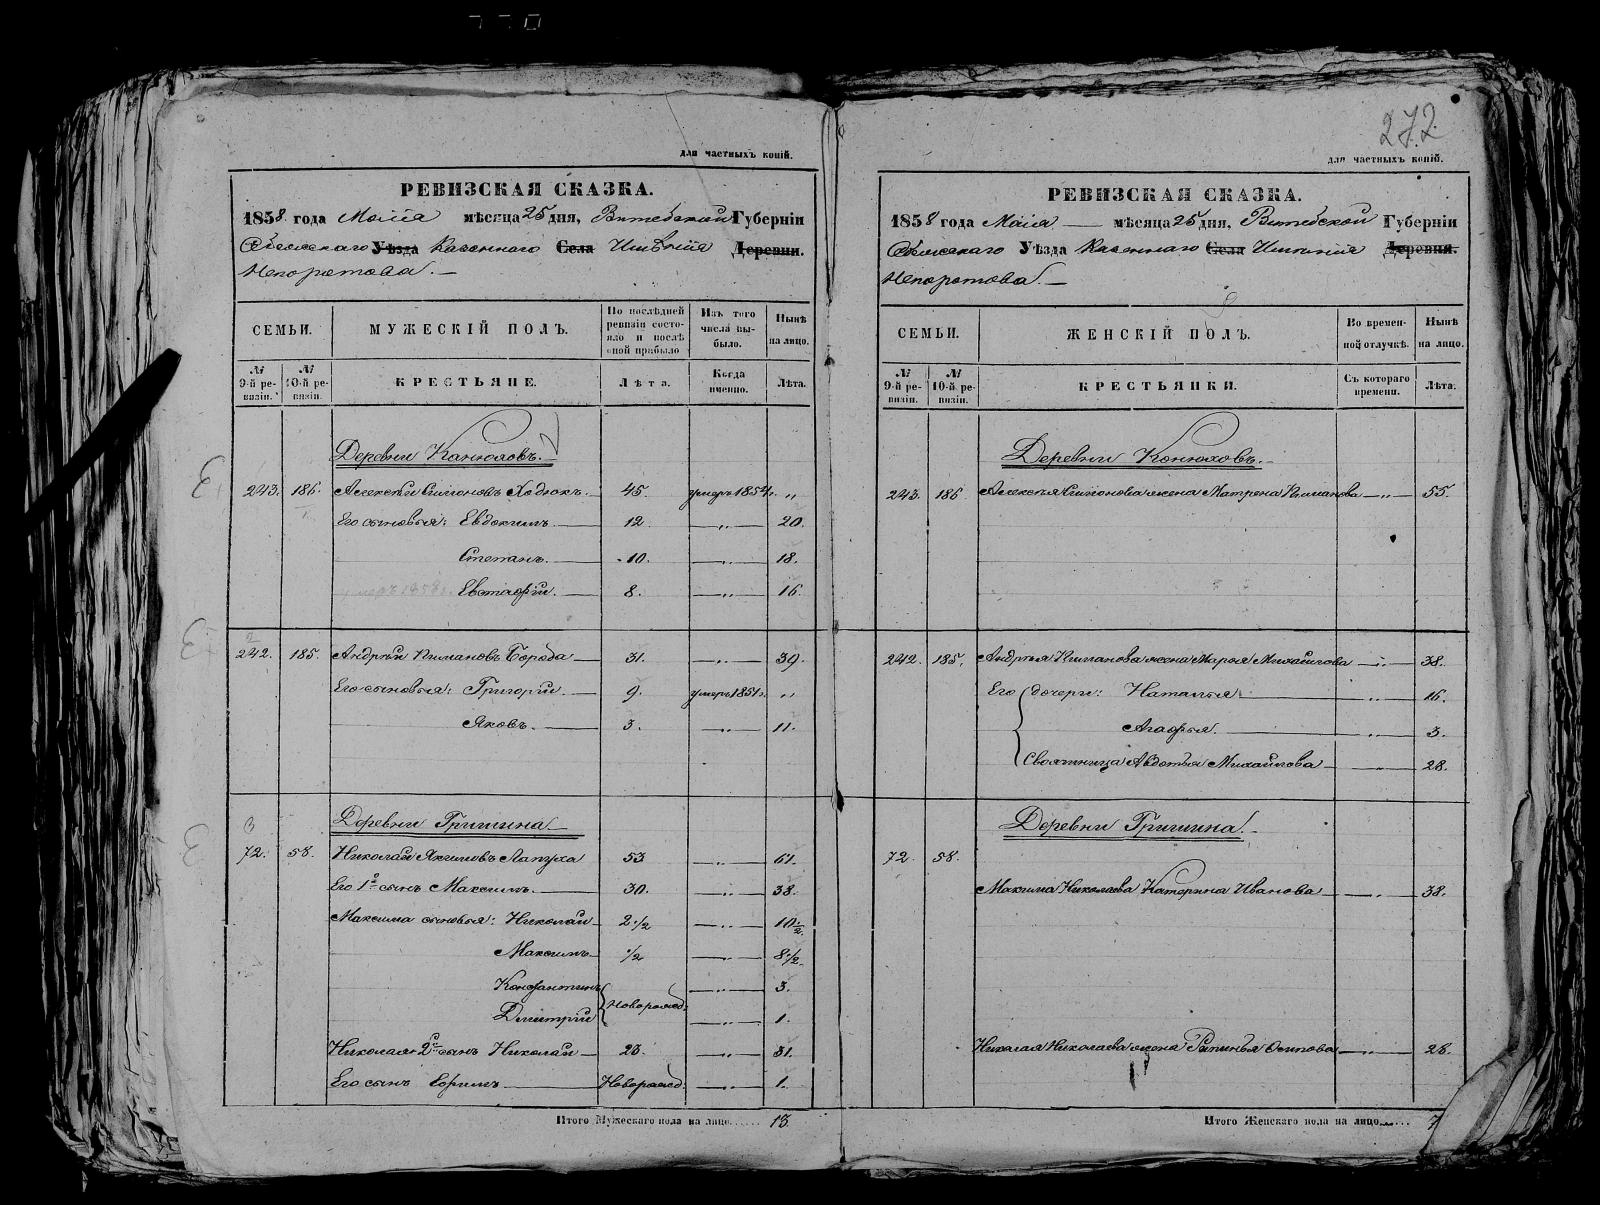 272
для частныхъ копій.
РЕВИЗСКАЯ СКАЗКА.
1858. года Маія мѣсяца 25 дня, Витебской Губерніи
Уѣзда Казеннаго Села Имѣнія Деревни.
Непоротова.
СЕМЬИ.
МУЖЕСКІЙ ПОЛЪ.
По послѣдней ревизіи состояло и послѣ оной прибыло
Изъ того числа выбыло.
Нынѣ на лицо.
№ 9-й ревизіи.
№ 10-й ревизіи.
КРЕСТЬЯНЕ.
Лѣта.
Когда именно.
Лѣта.
Деревни Канюховъ.
243. 186. Алексѣй Симоновъ Ходюкъ. 45. умеръ 1854 г. „
Его сыновья: Евдокимъ. 12. — „ — 20.
Степанъ. 10. — „ — 18.
умеръ 1858 Евстафій. 8. — „ — 16.
242. 185. Андрѣй Климановъ Борода 31. — „ — 39.
Его сыновья: Григорій. 9. умеръ 1851 г. „
Яковъ. 3. — „ — 11.
Деревни Гришина.
72. 58. Николай Якимовъ Лапуха 53 — „ — 61.
Его 1й сынъ Максимъ. 30. — „ — 38.
Максима сыновья: Николай 2 1/2 — „ — 10 1/2.
Максимъ 1/2 — „ — 8 1/2.
Константинъ — „ — 3.
Новорожд.
Дмитрій — „ — 1.
Николая 2й сынъ Николай 23. — „ — 31.
Его сынъ Ефимъ Новорожд. — „ — 1.
Итого Мужескаго пола на лицо...... 13.
для частныхъ копій.
РЕВИЗСКАЯ СКАЗКА.
1858 года Маія мѣсяца 25 дня, Витебской Губерніи
Уѣзда Казеннаго Села Имѣнія Деревни.
Непоротова.
СЕМЬИ.
ЖЕНСКІЙ ПОЛЪ.
Во временной отлучкѣ.
Нынѣ на лицо.
№ 9-й ревизіи.
№ 10-й ревизіи.
КРЕСТЬЯНКИ.
Съ котораго времени.
Лѣта.
Деревни Конюховъ.
243. 186 Алексѣя Симонова жена Матрена Климанова — „ — 55.
242. 185. Андрѣя Климанова жена Марья Михайлова — „ — 38.
Его дочери: Наталья — „ — 16.
Агафья. — „ — 3.
Своячиница Авдотья Михайлова — „ — 28.
Деревни Гришина.
72. 58.
Максима Николаева Катерина Иванова — „ — 38.
Николая Николаева жена Осипова — „ — 28.
Итого Женскаго пола на лицо...... 7